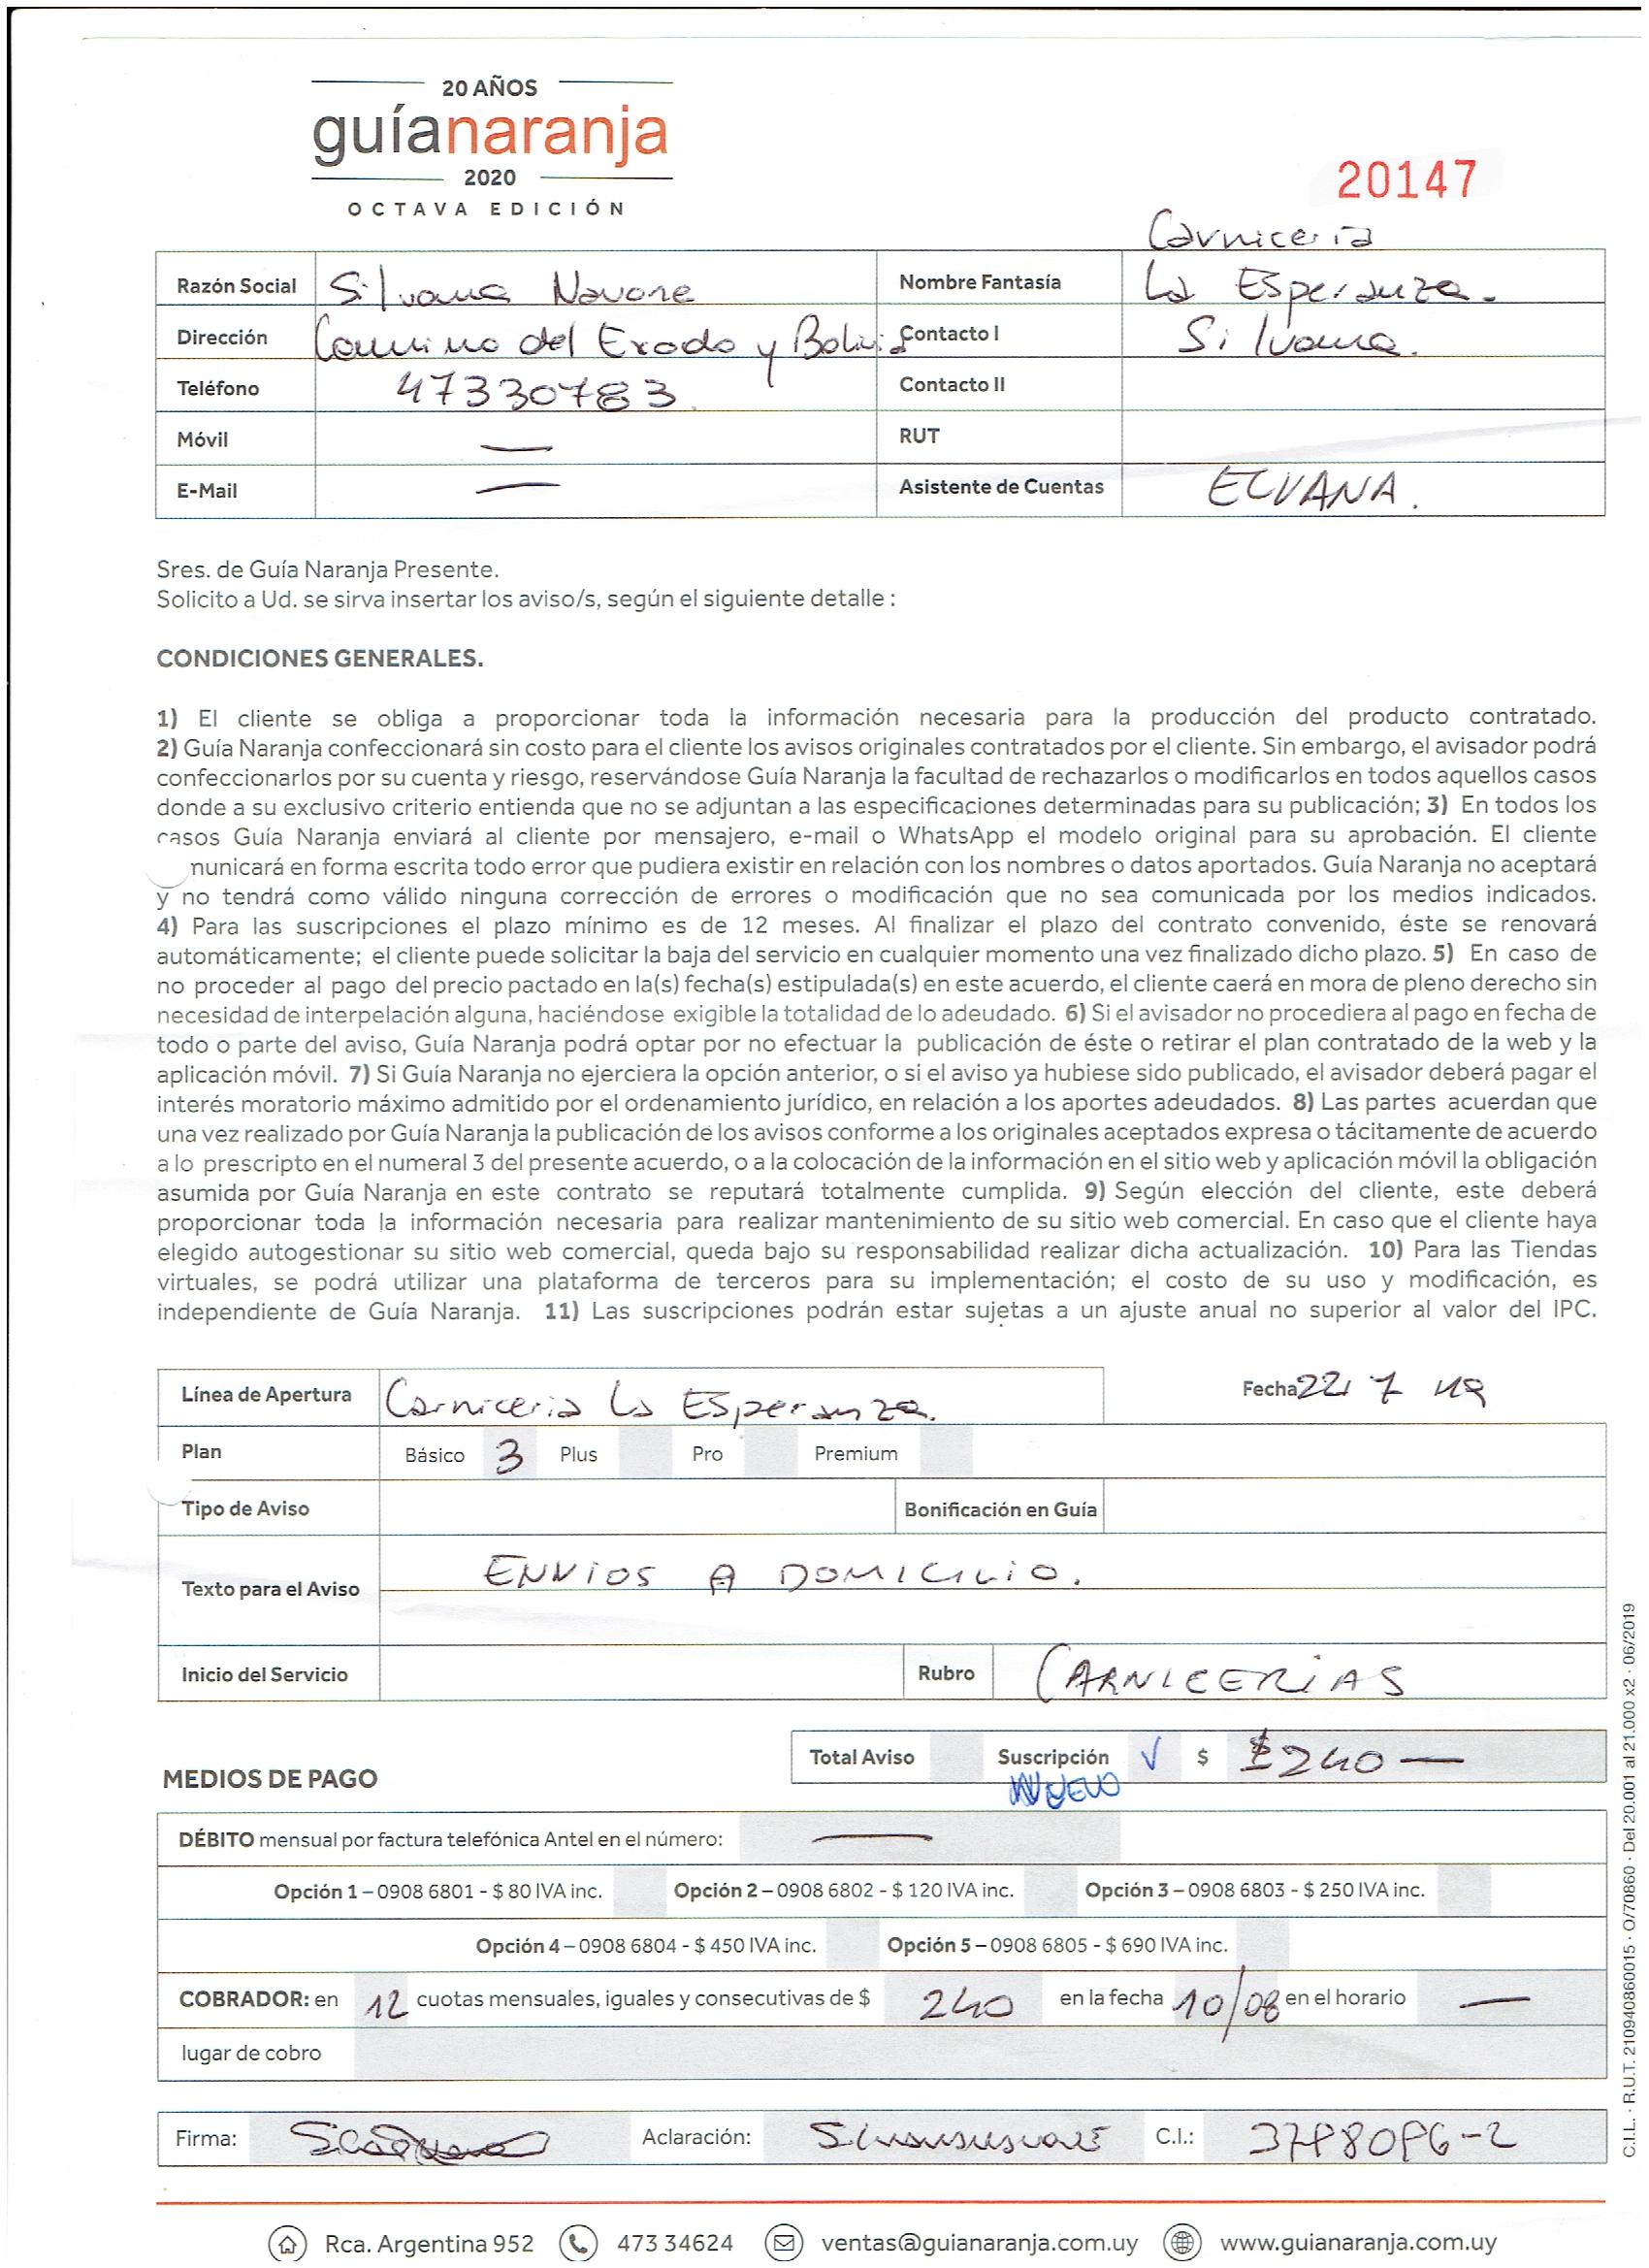 20 AÑOS
guíanaranja
2020
OCTAVA EDICIÓN
20147
Carniceria
Razón Social Silvana Navone Nombre Fantasía La Esperanza.
Dirección Camino del Exodo y Bolivia Contacto I Silvana.
Teléfono 47330783. Contacto II
Móvil — RUT
E-Mail — Asistente de Cuentas ELVANA.
Sres. de Guía Naranja Presente.
Solicito a Ud. se sirva insertar los aviso/s, según el siguiente detalle :
CONDICIONES GENERALES.
1) El cliente se obliga a proporcionar toda la información necesaria para la producción del producto contratado.
2) Guía Naranja confeccionará sin costo para el cliente los avisos originales contratados por el cliente. Sin embargo, el avisador podrá
confeccionarlos por su cuenta y riesgo, reservándose Guía Naranja la facultad de rechazarlos o modificarlos en todos aquellos casos
donde a su exclusivo criterio entienda que no se adjuntan a las especificaciones determinadas para su publicación; 3) En todos los
casos Guía Naranja enviará al cliente por mensajero, e-mail o WhatsApp el modelo original para su aprobación. El cliente
municará en forma escrita todo error que pudiera existir en relación con los nombres o datos aportados. Guía Naranja no aceptará
y no tendrá como válido ninguna corrección de errores o modificación que no sea comunicada por los medios indicados.
4) Para las suscripciones el plazo mínimo es de 12 meses. Al finalizar el plazo del contrato convenido, éste se renovará
automáticamente; el cliente puede solicitar la baja del servicio en cualquier momento una vez finalizado dicho plazo. 5) En caso de
no proceder al pago del precio pactado en la(s) fecha(s) estipulada(s) en este acuerdo, el cliente caerá en mora de pleno derecho sin
necesidad de interpelación alguna, haciéndose exigible la totalidad de lo adeudado. 6) Si el avisador no procediera al pago en fecha de
todo o parte del aviso, Guía Naranja podrá optar por no efectuar la publicación de éste o retirar el plan contratado de la web y la
aplicación móvil. 7) Si Guía Naranja no ejerciera la opción anterior, o si el aviso ya hubiese sido publicado, el avisador deberá pagar el
interés moratorio máximo admitido por el ordenamiento jurídico, en relación a los aportes adeudados. 8) Las partes acuerdan que
una vez realizado por Guía Naranja la publicación de los avisos conforme a los originales aceptados expresa o tácitamente de acuerdo
a lo prescripto en el numeral 3 del presente acuerdo, o a la colocación de la información en el sitio web y aplicación móvil la obligación
asumida por Guía Naranja en este contrato se reputará totalmente cumplida. 9) Según elección del cliente, este deberá
proporcionar toda la información necesaria para realizar mantenimiento de su sitio web comercial. En caso que el cliente haya
elegido autogestionar su sitio web comercial, queda bajo su responsabilidad realizar dicha actualización. 10) Para las Tiendas
virtuales, se podrá utilizar una plataforma de terceros para su implementación; el costo de su uso y modificación, es
independiente de Guía Naranja. 11) Las suscripciones podrán estar sujetas a un ajuste anual no superior al valor del IPC.
Línea de Apertura Carniceria La Esperanza. Fecha 22/ 7 /19
Plan Básico 3 Plus Pro Premium
Tipo de Aviso Bonificación en Guía
Texto para el Aviso ENVIOS A DOMICILIO.
Inicio del Servicio Rubro CARNICERIAS
Total Aviso Suscripción √ $ $240—
NUEVO
MEDIOS DE PAGO
DÉBITO mensual por factura telefónica Antel en el número: —
Opción 1 – 0908 6801 - $ 80 IVA inc. Opción 2 – 0908 6802 - $ 120 IVA inc. Opción 3 – 0908 6803 - $ 250 IVA inc.
Opción 4 – 0908 6804 - $ 450 IVA inc. Opción 5 – 0908 6805 - $ 690 IVA inc.
COBRADOR: en 12 cuotas mensuales, iguales y consecutivas de $ 240 en la fecha 10/08 en el horario —
lugar de cobro
Firma: Aclaración: C.I.:
Rca. Argentina 952 473 34624 ventas@guianaranja.com.uy www.guianaranja.com.uy
C.I.L. · R.U.T. 210940860015 · O/70860 · Del 20.001 al 21.000 x2 · 06/2019